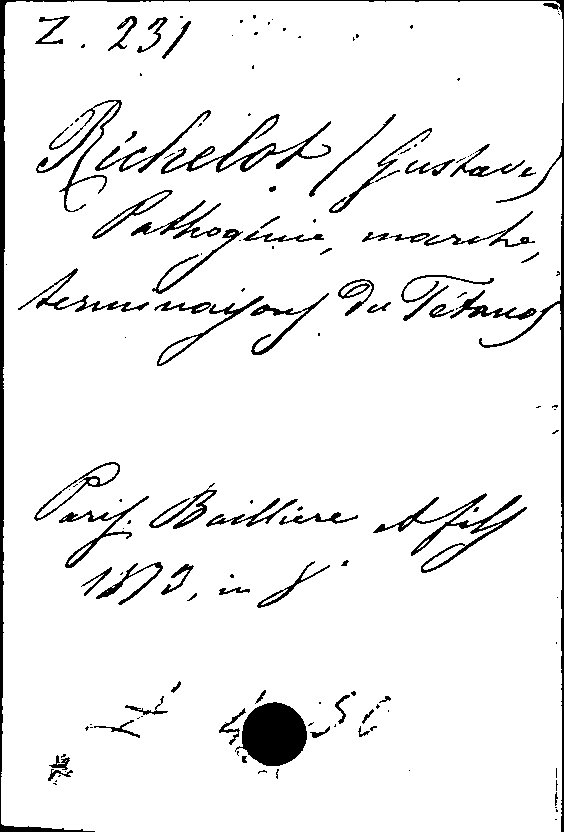 Z. 231
Richelot (Gustave)
Pathogénie, marche,
terminaisons du Tétanos
Paris. Baillière et fils
1873, in 8°